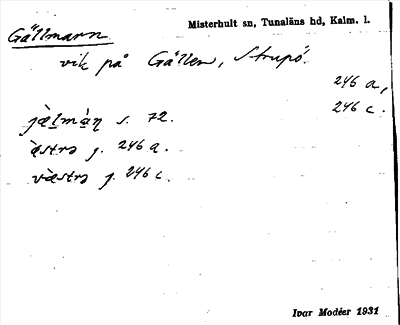 Gällmarn
Misterhult sn, Tunaläns hd, Kalm. l.
vik på Gällen, Strupö.
246 a,
246 c.
jæ̀lmàn s. 72.
ǫ̀strə j. 246 a.
væ̀strə j. 246 c.
Ivar Modéer 1931